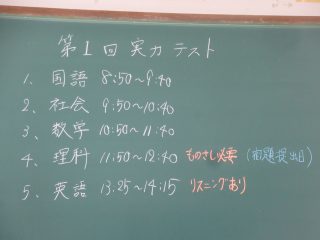 第1回実力テスト
1、国語 8:50~9:40
2、社会 9:50~10:40
3、数学 10:50~11:40
4、理科 11:50~12:40 ものさし必要 (宿題提出日)
5、英語 13:25~14:15 リスニングあり